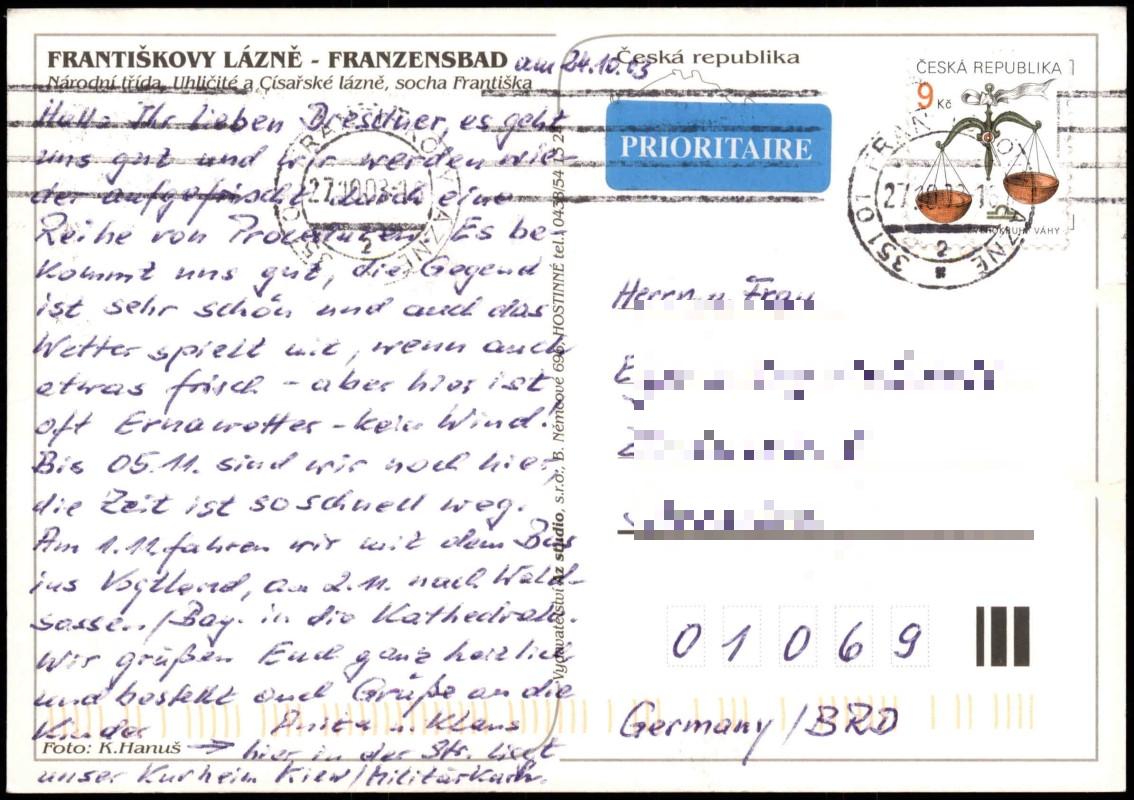 FRANTIŠKOVY LÁZNĚ - FRANZENSBAD am 24.10.03
Národní třída, Uhličité a Císařské lázně, socha Františka
Hallo Ihr Lieben Dresdner, es geht
uns gut und wir werden wie-
der aufgefrischt durch eine
Reihe von Prozeduren. Es be-
kommt uns gut, die Gegend
ist sehr schön und auch das
Wetter spielt mit, wenn auch
etwas frisch - aber hier ist
oft Ernawetter - kein Wind.
Bis 05.11. sind wir noch hier,
die Zeit ist so schnell weg.
Am 1.11. fahren wir mit dem Bus
ins Vogtland, am 2.11. nach Wald-
sassen/Bay. in die Kathedrale.
Wir grüßen Euch ganz herzlich
und bestellt auch Grüße an die
Kinder Anita u. Klaus
Foto: K.Hanuš → hier in der Str. liegt
unser Kurheim Kiew/Militärkurh.
Vydavatelství Az studio, s.r.o., B. Němcové 696, HOSTINNÉ tel.: 0438/54 13 2
Česká republika
PRIORITAIRE
ČESKÁ REPUBLIKA
9 Kč
VÁHY
27.10.03
2
27.10.03
351 01
LÁZNĚ
2
Herrn u. Frau
01069
Germany/BRD